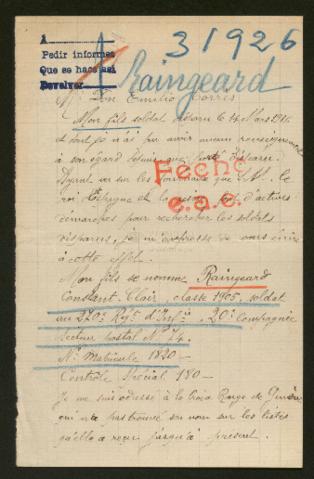 A
Pedir informes
Que se haga así
Devolver
31926
Raingeard
Mr Don Emilio Torres
Mon fils soldat disparu le 14 Mars 1915
et dont je n'ai pu avoir aucun renseignement
à son égard depuis que porté disparu.
Ayant vu sur les journaux que S.M. le
roi d'Espagne et d'actives
démarches pour rechercher les soldats
disparus, je m'empresse de vous écrire
à cette effet.
Fecho
e.a.c.
Mon fils se nomme Raingeard
Constant Clair, classe 1905, soldat
au 270e Regt d'Infie, 20e Compagnie
Secteur postal No 74.
No Matricule 1820 -
Contrôle Spécial 180 -
Je me suis adressé à la Croix Rouge de Genève
qui n'a pas trouvé son nom sur les listes
qu'elle a reçu jusqu'à présent.